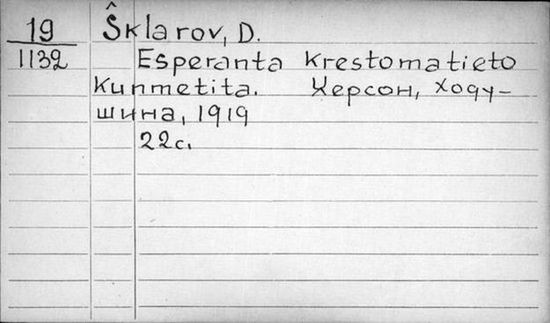 19 Ŝklarov, D.
1132 Esperanta krestomatieto
kunmetita. Херсон, Ходу-
шина, 1919
22с.